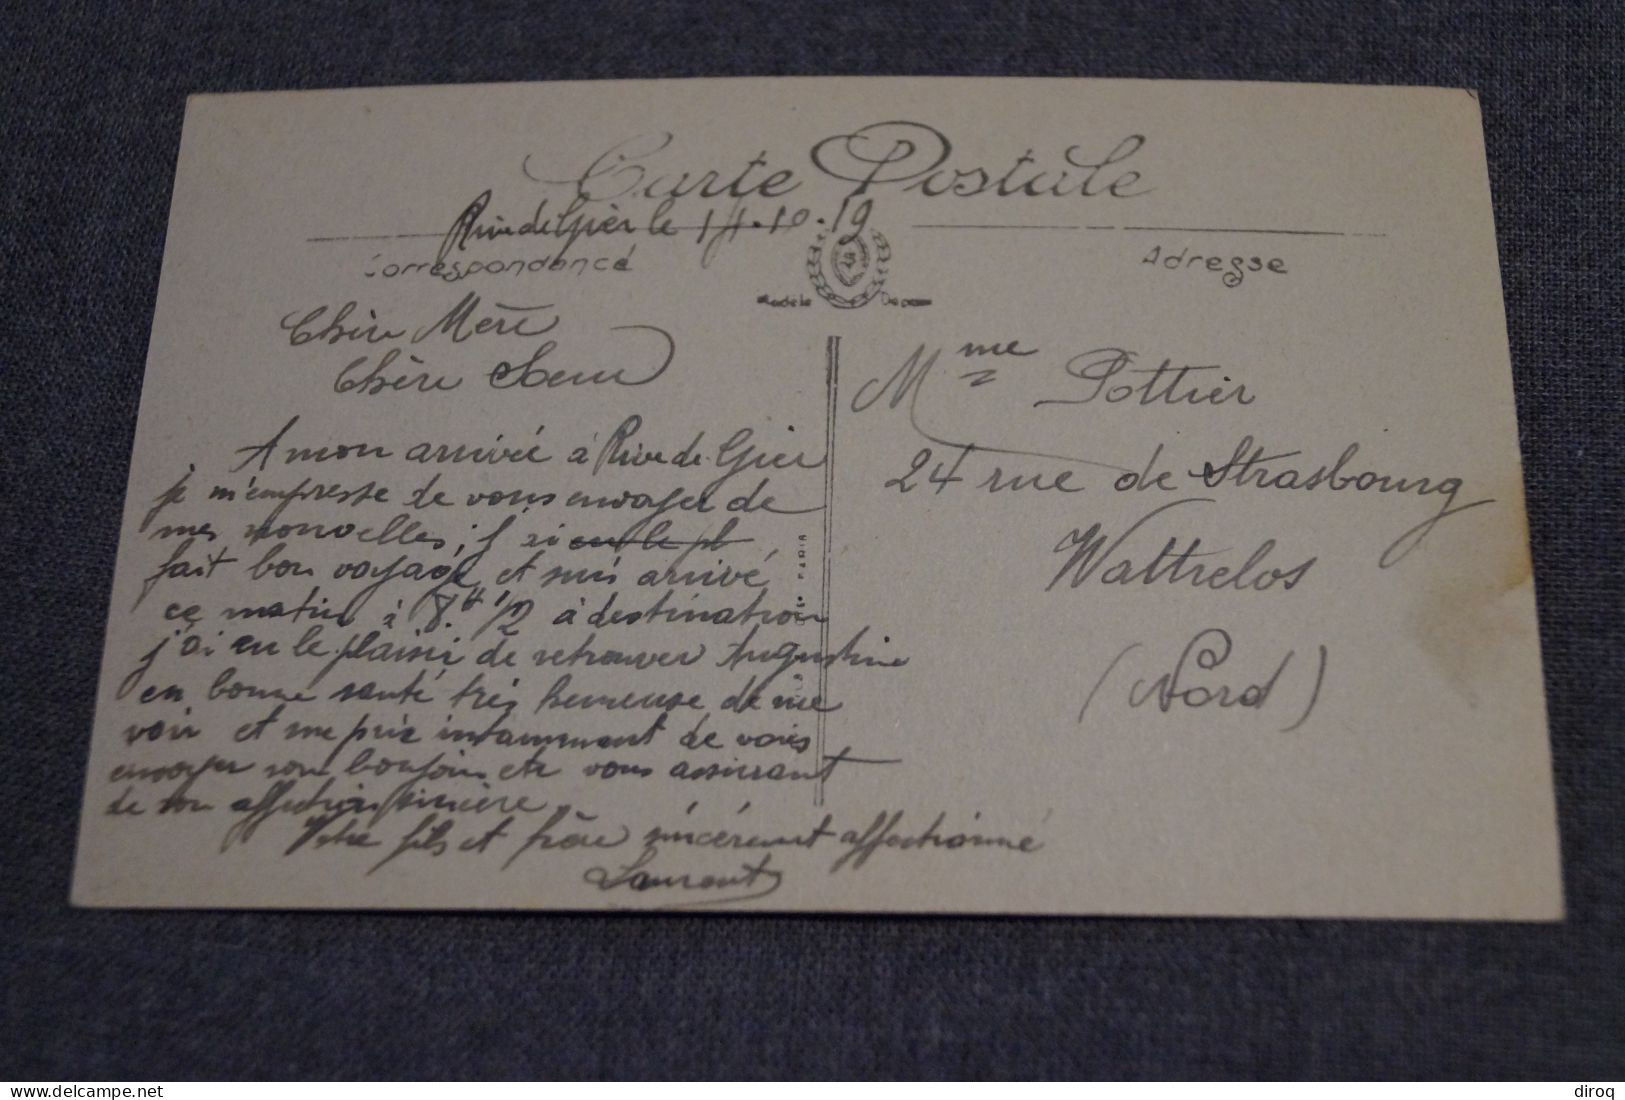 Carte Postale
Rive de Gier le 14.10.19
Correspondance
Adresse
Modèle Déposé
Chère Mère
Chère Soeur
A mon arrivée à Rive de Gier
je m'empresse de vous envoyer de
mes nouvelles; j'ai eu le pl
fait bon voyage et suis arrivé
ce matin à 8.H 1/2 à destination
j'ai eu le plaisir de retrouver Augustine
en bonne santé très heureuse de me
voir et me prie instamment de vous
envoyer son bonjour et vous assurant
de son affection sincère
Votre fils et frère sincèrement affectionné
Laurent
Mme Pottier
24 rue de Strasbourg
Wattrelos
(Nord)
PARIS
delcampe.net
diroq